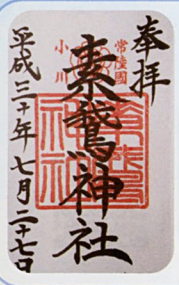 奉拝
常陸國
小川
素鵞神社
平成三十年七月二十七日